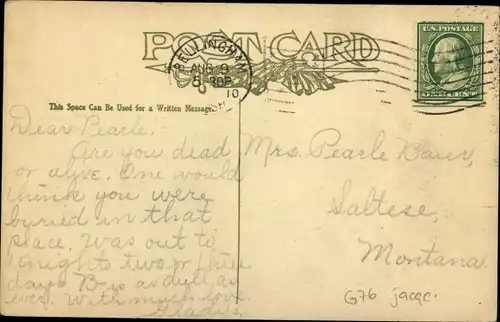 POST CARD
BELLINGHAM
AUG 9
5-30P
10
U.S. POSTAGE
ONE CENT
This Space Can Be Used for a Written Message.
Dear Pearle.
Are you dead
or alive. One would
think you were
buried in that
place. Was out to
nights two or three
days. B- is as dull as
ever. With much love.
Gladys.
Mrs. Pearle
Saltese,
Montana.
G76